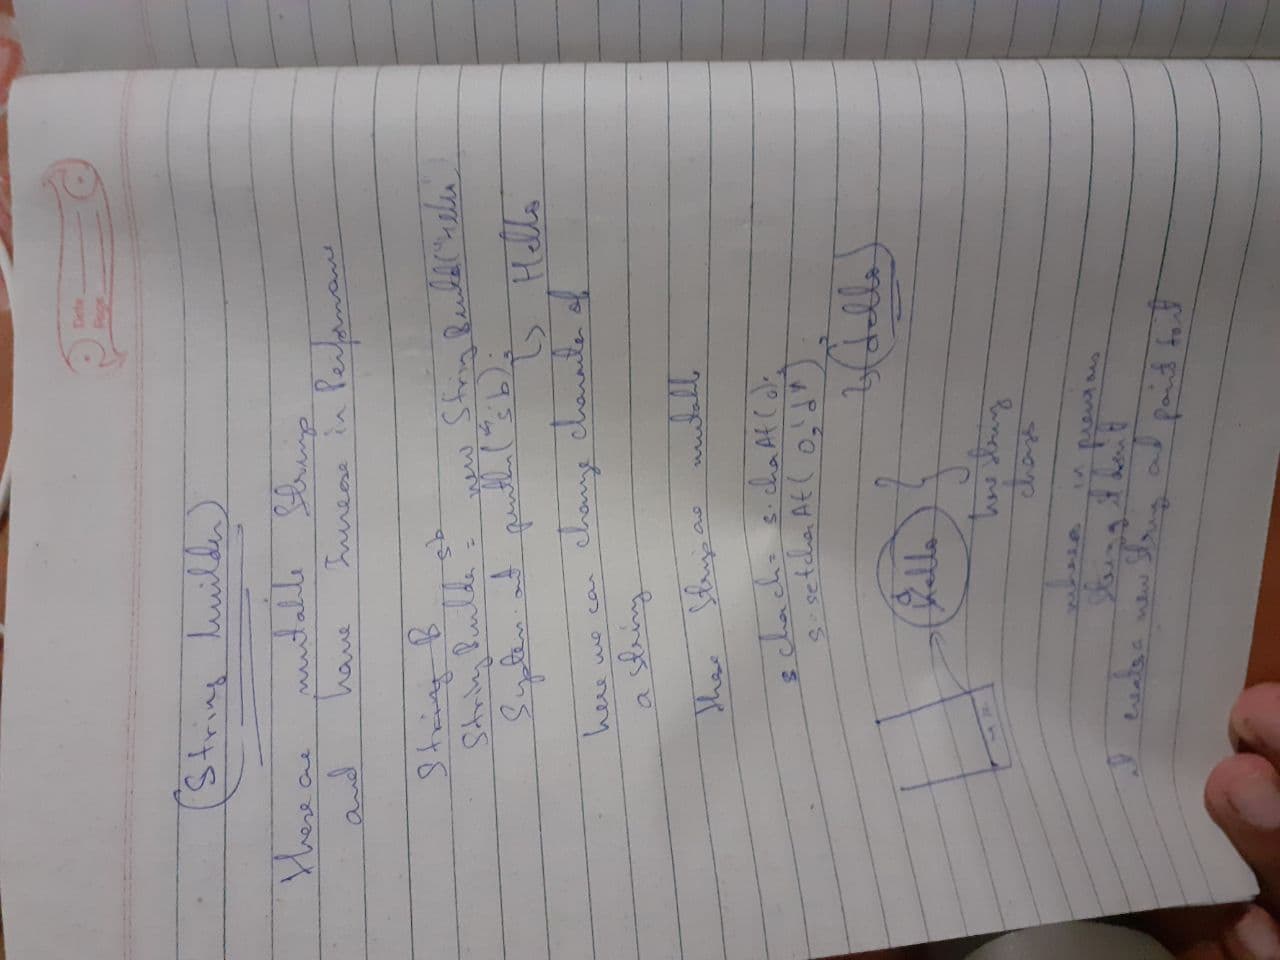 Date
Page
(String builder)
These are mutable Strings
and have Increase in Performane
String B
StringBuilder sb
= new StringBuild("Hello")
System.out println("sb);
↳ Hello
here we can change character of
a string
These String are mutable
char ch = s.chaAt(0);
s.setcharAt(0,'d');
↳ (dello)
d
Hello
here string
change
whereas in previous
String it dont
it creates a new string and point to it